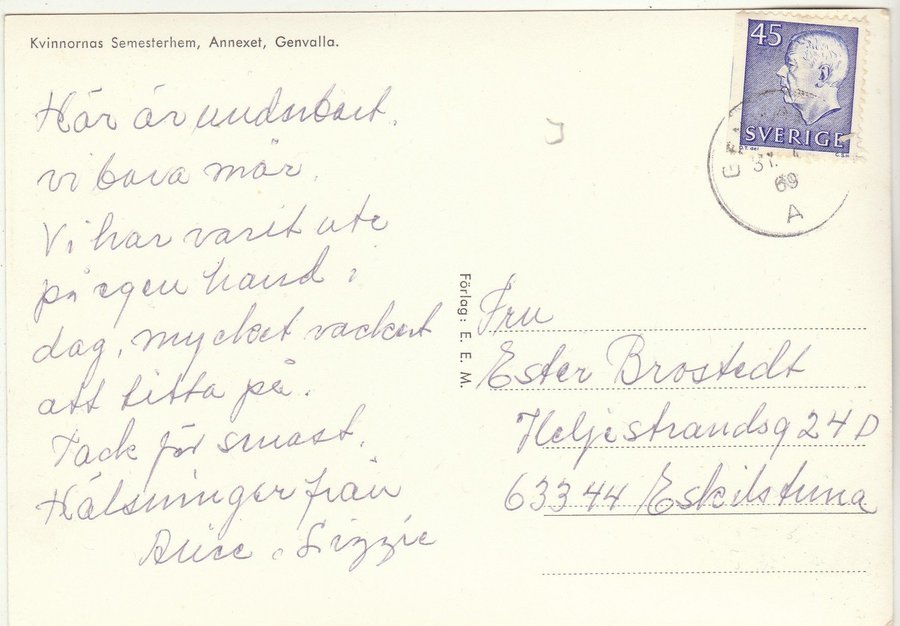 Kvinnornas Semesterhem, Annexet, Genvalla.
Här är underbart.
vi bara mår.
Vi har varit ute
på egen hand i
dag, mycket vackert
att titta på.
Tack för smast.
Hälsninger från
Alice o Lizzie
45
SVERIGE
31.
69
A
Förlag: E. E. M.
Fru
Ester Brostedt
Heljestrandsg 24 D
633 44 Eskilstuna